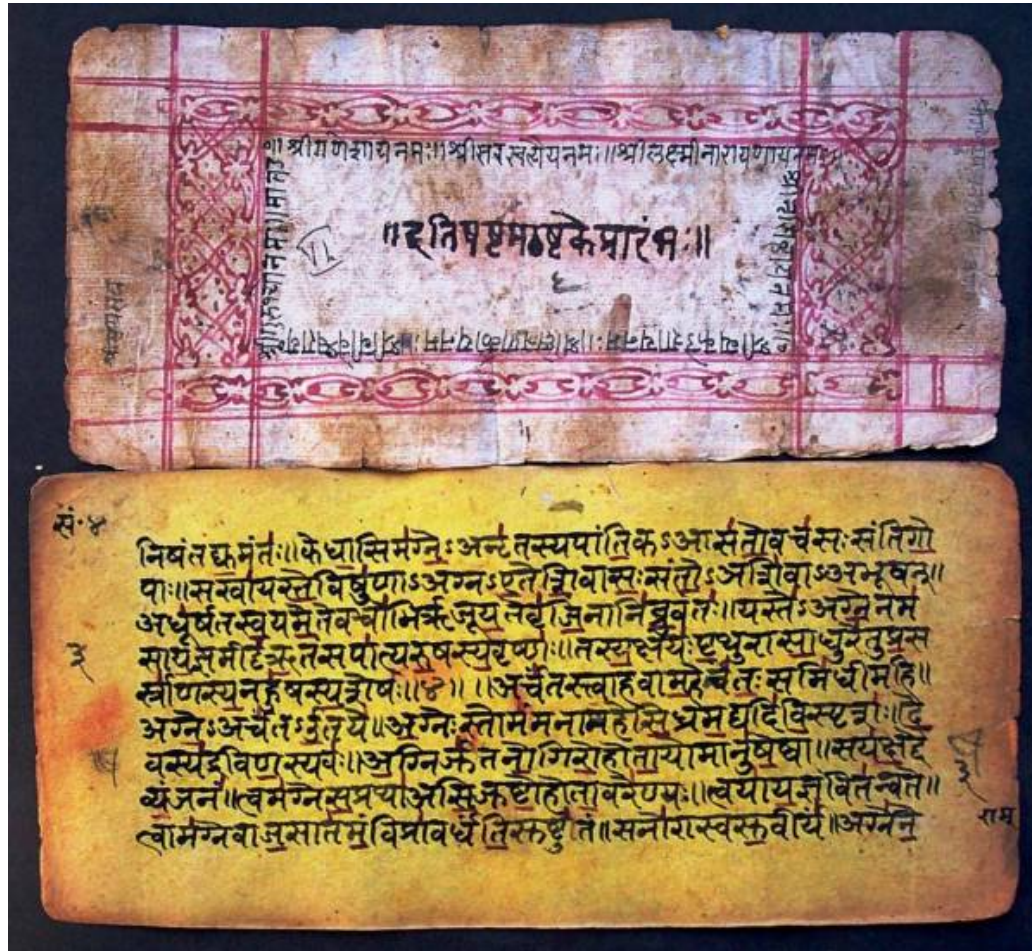 ॥श्रीगणेशायनमः॥श्रीसरस्वत्येयनमः॥श्रीलक्ष्मीनारायणायनमः
॥इतिषष्टमठष्टकैप्रारंभः॥
६
श्रीगुरुभ्योनमः॥
श्रीव्यंकटेशायनमः॥
सं॰४
निषंतद्युमंतः॥केधासिमग्नेऽअनृतस्यपांतिकऽआसतोवचसःसंतिगो
पाः॥सखायस्तेविषुणाऽअग्नऽएतेशिवासःसंतोऽअशिवाऽअभूवन्॥
अधूर्षतस्वयमेतेवचोभिर्ऋजूयतेवृजिनानिब्रुवंतः॥यस्तेऽअग्नेनम
सायज्ञमीट्टऋतंसपात्यरुषस्यवृष्णः॥तस्यक्षयःपृथुरासाधुरेतुप्रस
र्स्राणस्यनहुषस्यशेषः॥४॥ ॥अर्चंतस्त्वाहवामहेर्चंतःसमिधीमहि॥
अग्नेऽअर्चंतऽऊतये॥अग्नेःस्तोमंमनामहेसिध्रमद्यदिविस्पृशः॥दे
वस्यद्रविणस्यवः॥अग्निर्जुषतनोगिरोहोतायोमानुषेष्वा॥सयक्षद्दै
व्यंजनं॥त्वमग्नेसप्रथाअसिजुष्टोहोतावरेण्यः॥त्वयायज्ञंवितन्वते॥
त्वामग्नेवाजसातमंविप्रावर्धंतिसुष्टुतं॥सनोरास्वसुवीर्यं॥अग्नेने
३
राम